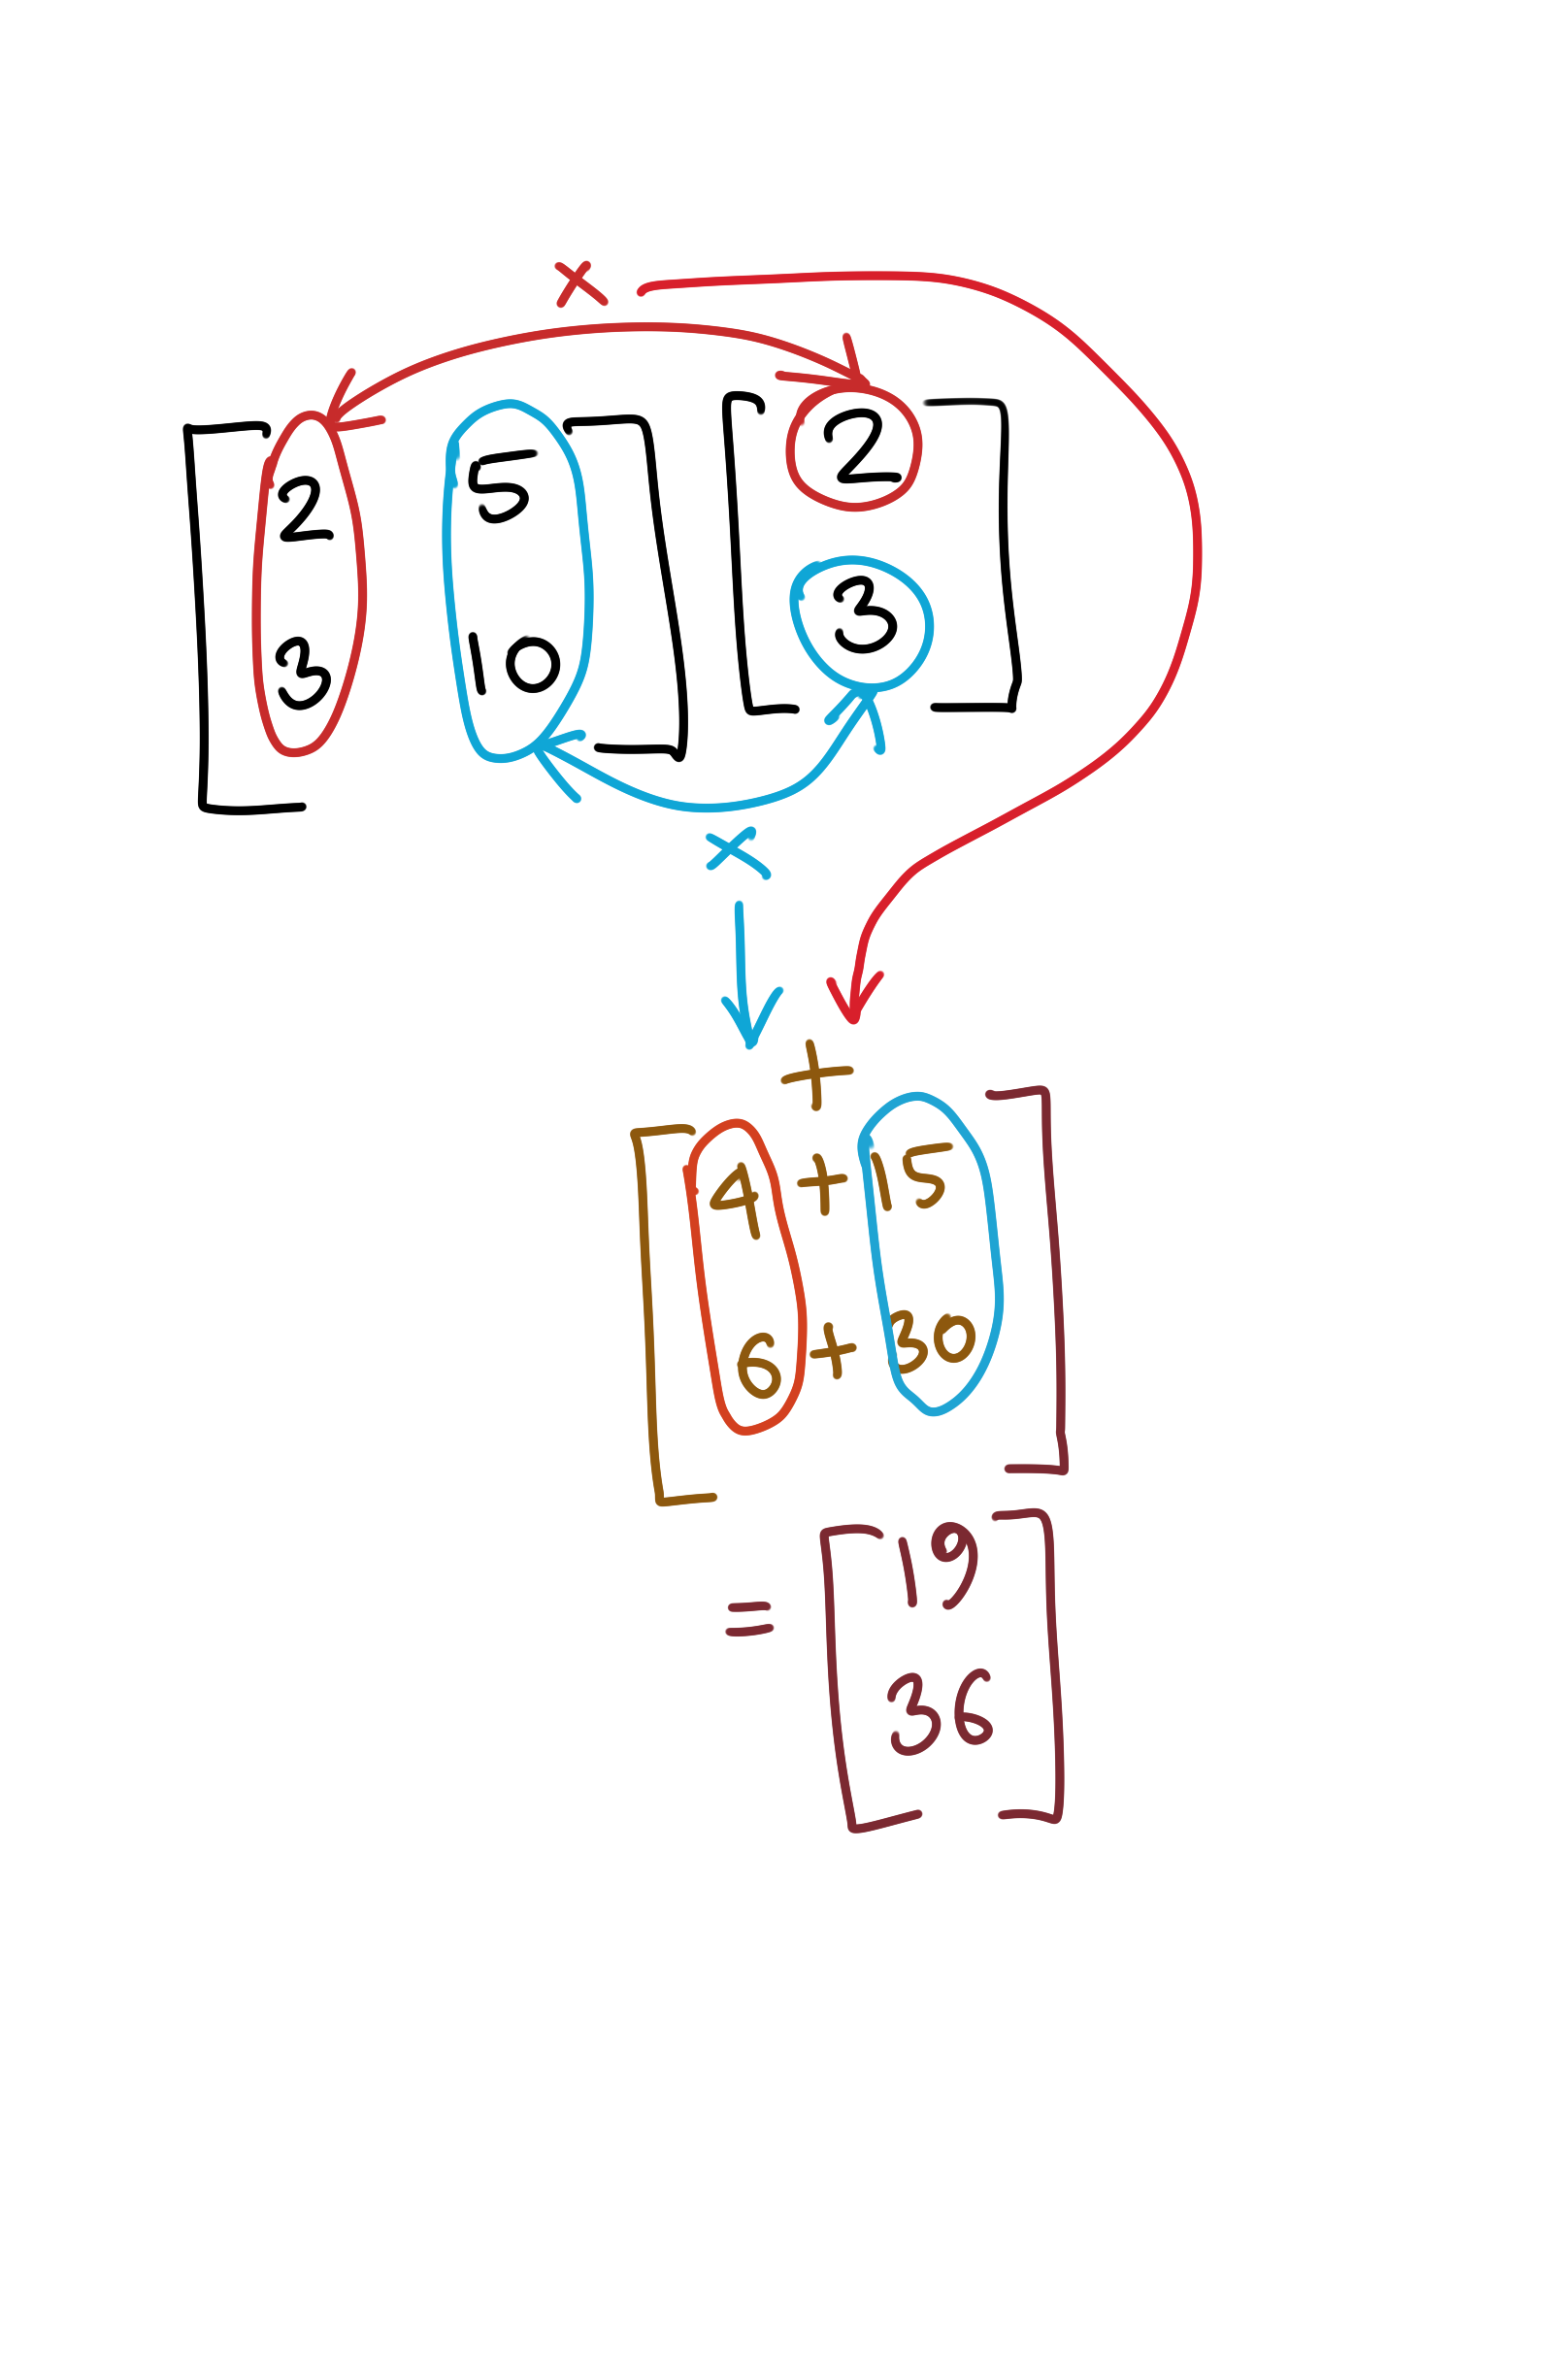 ×
[2 5] [2]
[3 10] [3]
×
+
[4 + 15]
[6 + 30]
= [19]
[36]